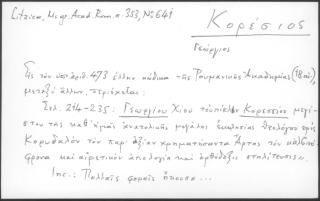 Litzica, Ms gr. Acad. Rom. σ. 353, № 641
Κορέσσιος
Γεώργιος
Εἰς τὸν ὑπ' ἀριθ. 473 ἑλλην. κώδικα τῆς Ῥουμανικῆς Ἀκαδημίας (18 αἰ.),
μεταξὺ ἄλλων, περιέχεται:
Σελ. 214-235: Γεωργίου Χίου τοὐπίκλην Κορεσσίου μεγί-
στου τῆς καθ' ἡμᾶς ἀνατολικῆς μεγάλης ἐκκλησίας θεολόγου πρὸς
Κορυδαλὸν τὸν παρ' ἀξίαν χρηματίσαντα Ἄρτης τὸν
φρονα καὶ αἱρετικὸν ἀπολογία καὶ ὀρθόδοξις στηλίτευσις.
Inc.: Πολλαῖς φοραῖς ἤκουσα...